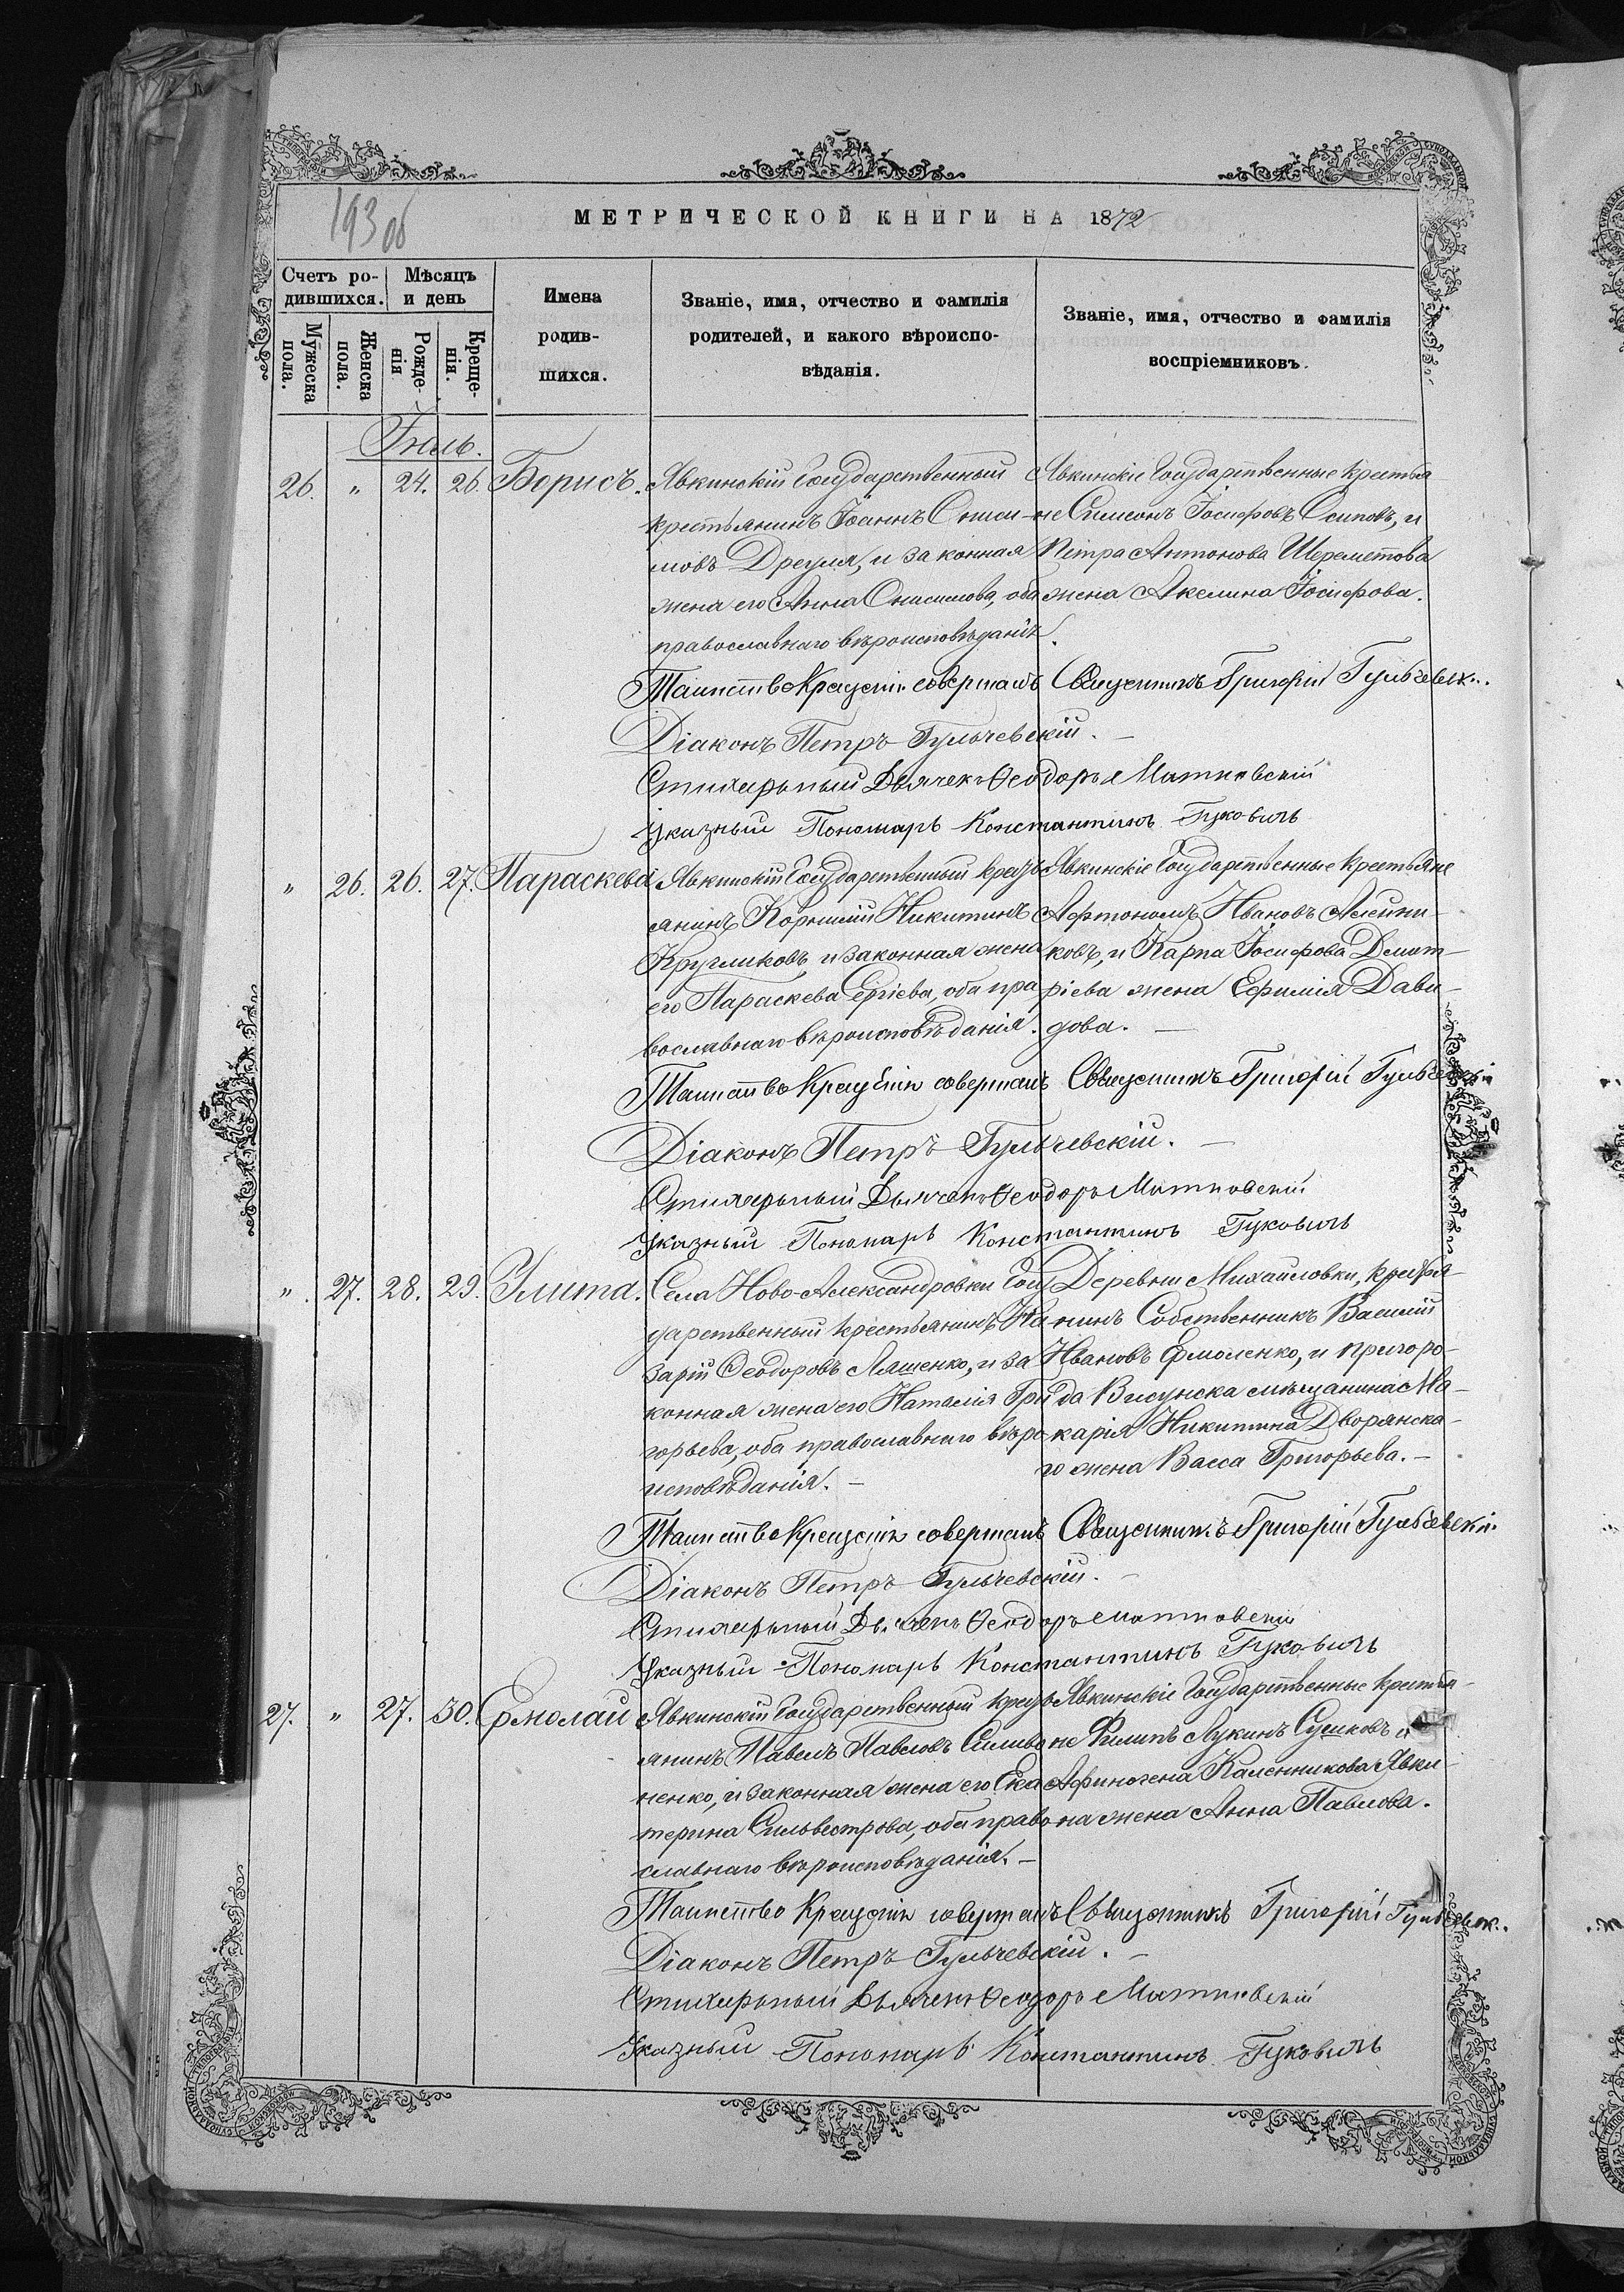 193 об
МЕТРИЧЕСКОЙ КНИГИ НА 1872
Счетъ ро-
дившихся.
Мѣсяцъ
и день
Мужеска
пола.
Женска
пола.
Рожде-
нія
Креще-
нія.
Имена
родив-
шихся.
Званіе, имя, отчество и фамилія
родителей, и какого вѣроиспо-
вѣданія.
Званіе, имя, отчество и фамилія
воспріемниковъ.
Іюль.
26. " 24. 26. Борисъ.
Явкинскій Государственный
крестьянинъ Іоаннъ Ониси-
мовъ Дреуля, и законная
жена его Анна Онисимова, оба
православнаго вѣроисповѣданія.
Явкинскіе Государственные крестья
не Симеонъ Іосифовъ Осиповъ, и
Петра Антонова Шереметова
жена Акелина Іосифова.
Таинство Крещенія совершалъ Священникъ Григорій Гульчевск...
Діаконъ Петръ Гульчевскій.
Стихарный Дьячекъ Ѳеодоръ Матковскій
Указный Пономарь Константинъ Гуковичъ
" 26. 26. 27. Параскева
Явкинскій Государственный кресть
янинъ Корнилій Никитинъ
Кругликовъ, и законная жена
его Параскева Ергіева, оба пра
вославнаго вѣроисповѣданія.
Явкинскіе Государственные крестьяне
Афтономъ Ивановъ Алейни-
ковъ, и Карпа Іосифова Демит-
ріева жена Ефимія Дави-
дова.
Таинство Крещенія совершалъ Священникъ Григорій Гульчевскій
Діаконъ Петръ Гульчевскій.
Стихарный Дьячекъ Ѳеодоръ Матковскій
Указный Пономарь Константинъ Гуковичъ
" 27. 28. 29. Улита.
Села Ново-Александровки Госу
дарственный крестьянинъ На
зарій Ѳеодоровъ Ляшенко, и за
конная жена его Наталія Гри
горьева, оба православнаго вѣро
исповѣданія.
Деревни Михайловки, крестья-
нинъ Собственникъ Василій
Ивановъ Ермоленко, и пригоро-
да Висунска мѣщанина Ма-
карія Никитина Дворянска-
го жена Васса Григорьева.
Таинство Крещенія совершалъ Священникъ Григорій Гульчевскій
Діаконъ Петръ Гульчевскій.
Стихарный Дьячекъ Ѳеодоръ Матковскій
Указный Пономарь Константинъ Гуковичъ
27. " 27. 30. Ермолай
Явкинскій Государственный кресть
янинъ Павелъ Павловъ Силива
ненко, и законная жена его Ека
терина Сильвестрова, оба право
славнаго вѣроисповѣданія.
Явкинскіе Государственные крестья-
не Филипъ Лукинъ Сушковъ и
Афиногена Каленникова Явки-
на жена Анна Павлова.
Таинство Крещенія совершалъ Священникъ Григорій Гульчевск..
Діаконъ Петръ Гульчевскій.
Стихарный Дьячекъ Ѳеодоръ Матковскій
Указный Пономарь Константинъ Гуковичъ